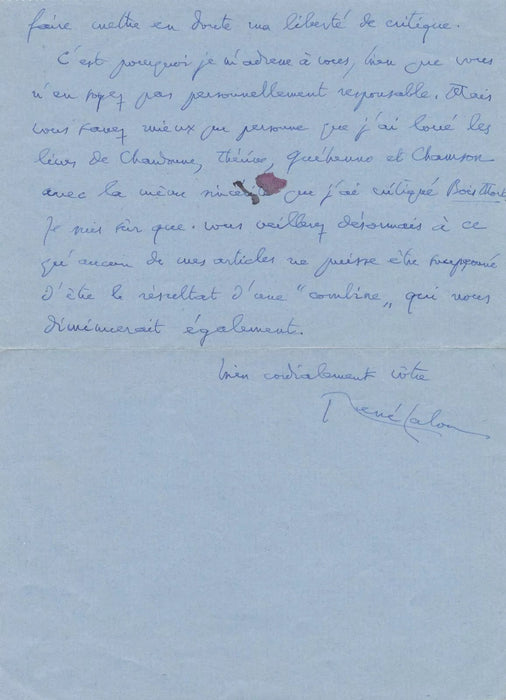 faire mettre en doute ma liberté de critique.
C'est pourquoi je m'adresse à vous, bien que vous
n'en soyez pas personnellement responsable. Mais
vous savez mieux que personne que j'ai loué les
livres de Chardonne, Thérive, Guéhenno et Chamson
avec la même sincérité que j'ai critiqué Bois Mort.
Je suis sûr que vous veillerez désormais à ce
qu'aucun de mes articles ne puisse être soupçonné
d'être le résultat d'une "combine", qui nous
diminuerait également.
bien cordialement vôtre
René Lalou